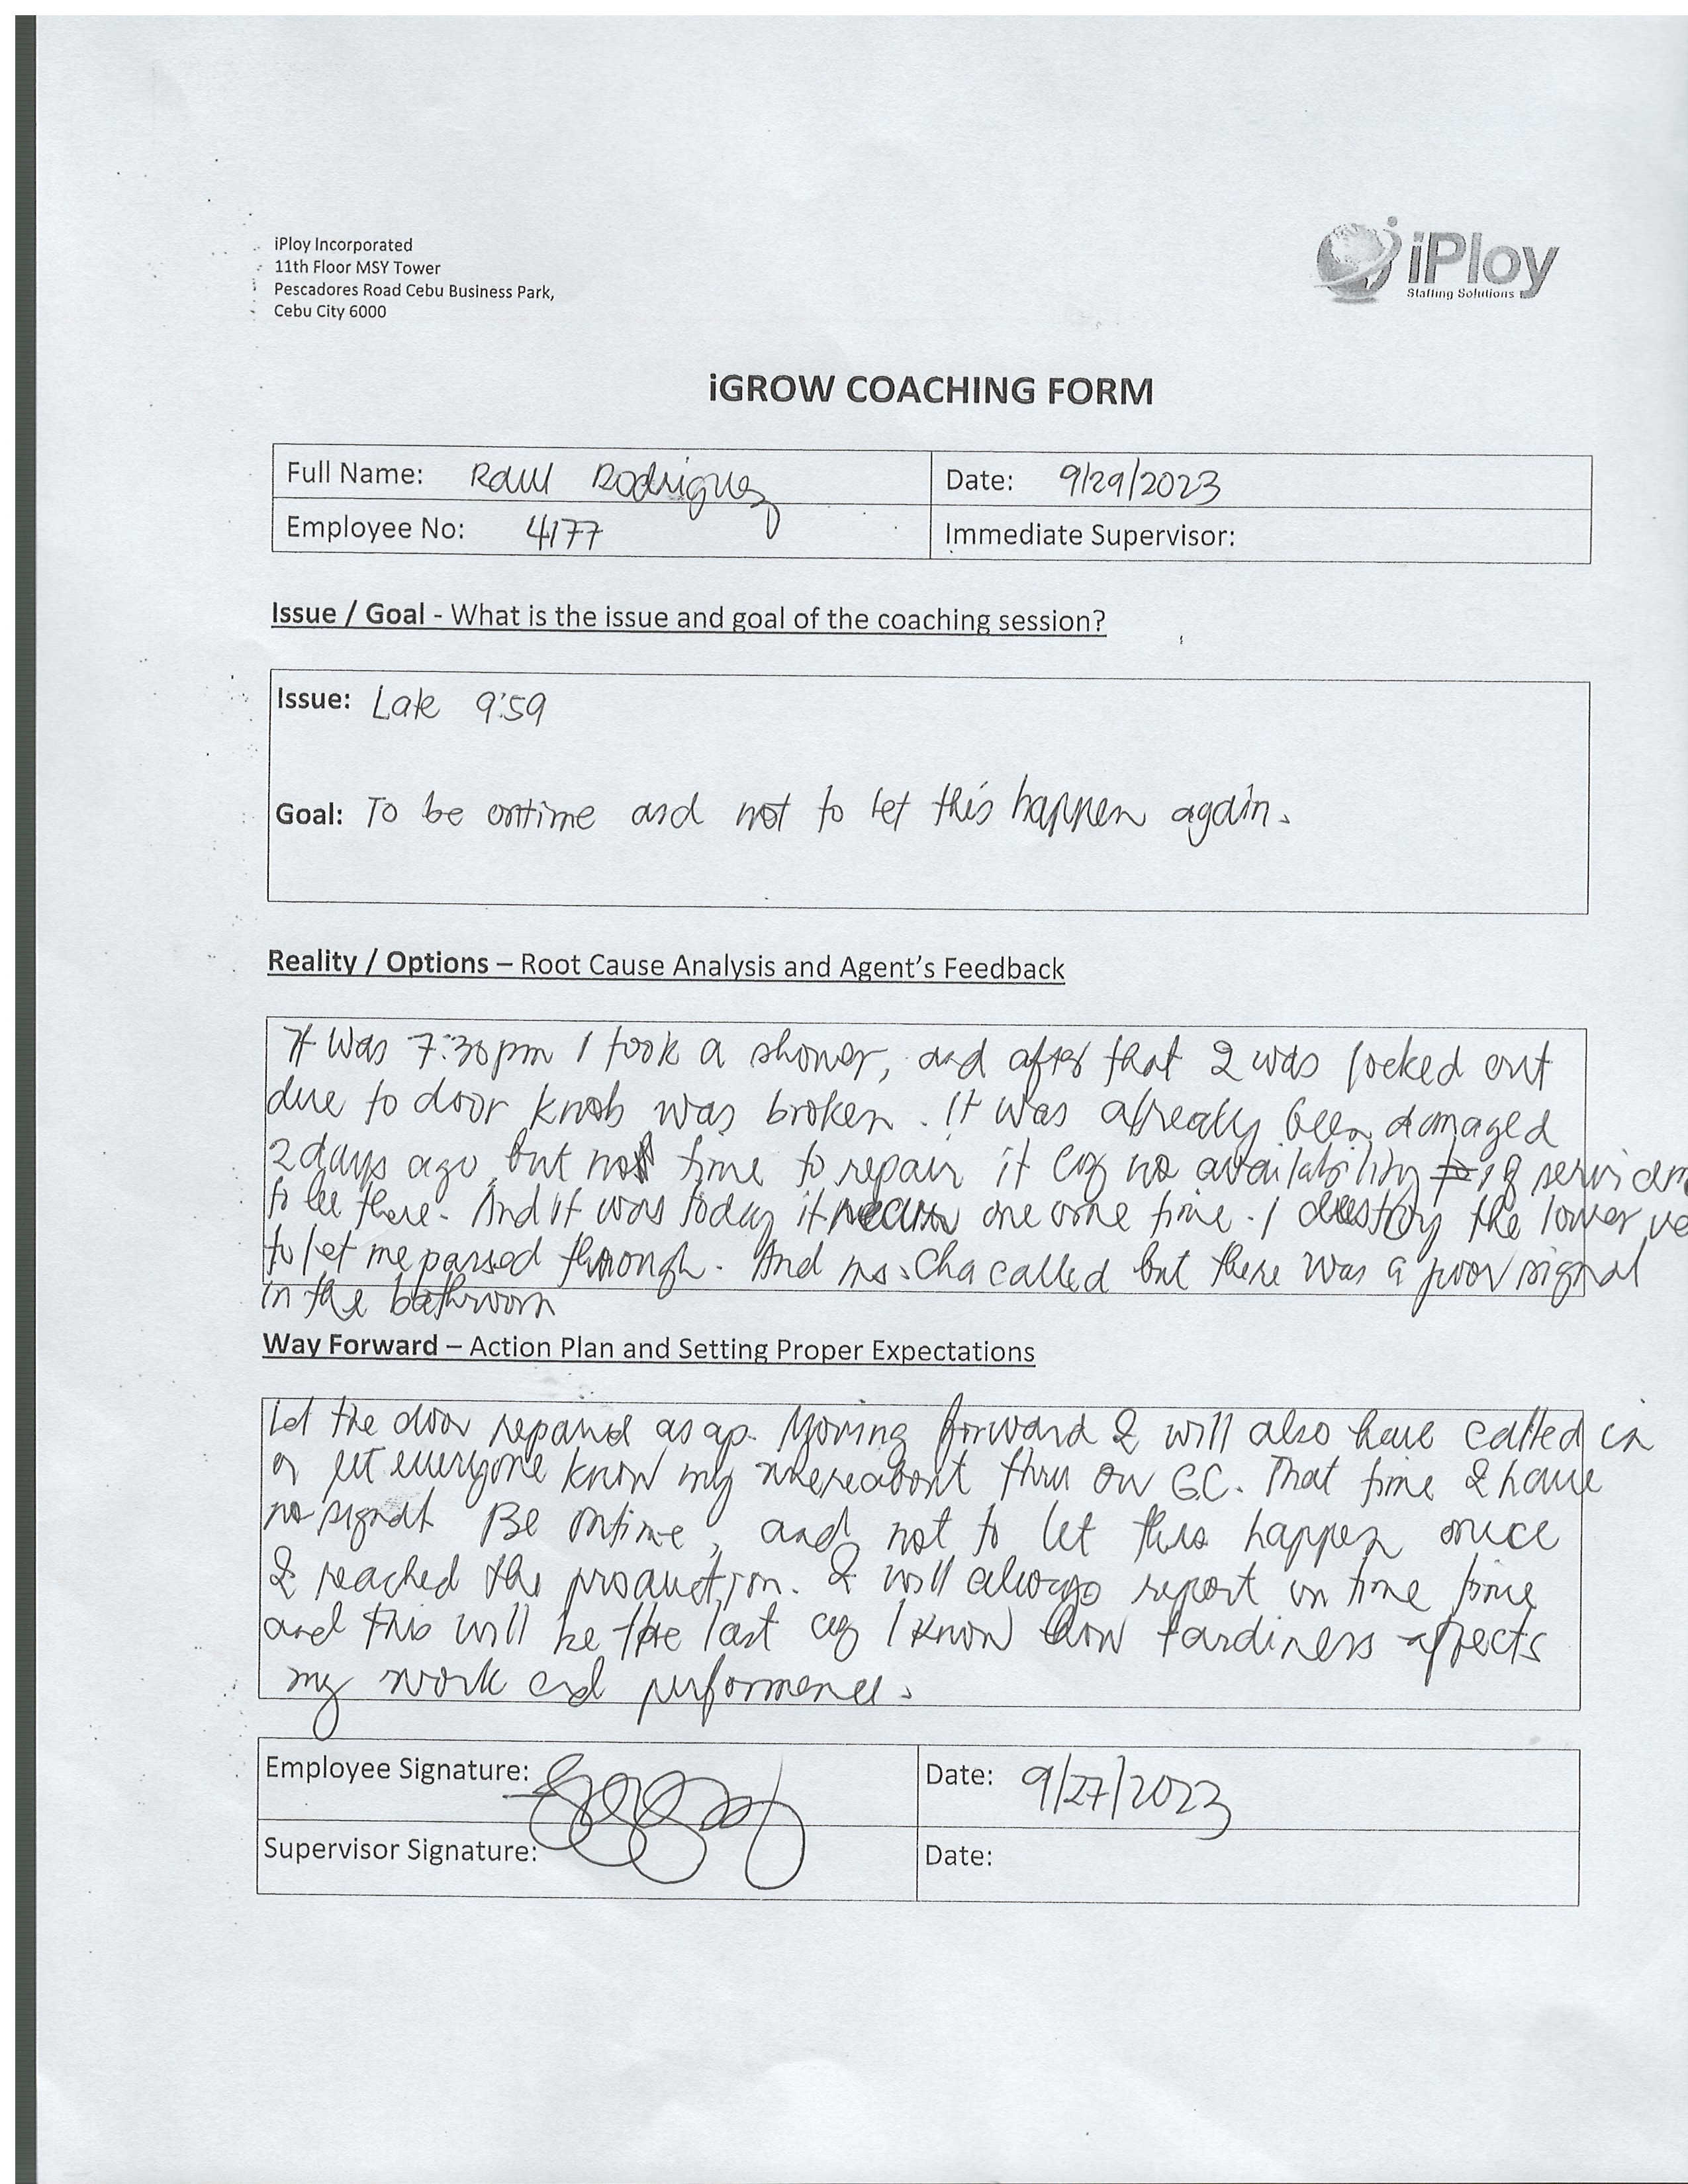 iPloy Incorporated
11th Floor MSY Tower
Pescadores Road Cebu Business Park,
Cebu City 6000
iPloy
Staffing Solutions
iGROW COACHING FORM
Full Name: Raul Rodriguez
Date: 9/29/2023
Employee No: 4177
Immediate Supervisor:
Issue / Goal - What is the issue and goal of the coaching session?
Issue: Late 9:59
Goal: To be ontime and not to let this happen again.
Reality / Options – Root Cause Analysis and Agent's Feedback
It was 7:30pm I took a shower, and after that I was locked out
due to door knob was broken. It was already been damaged
2 days ago but no time to repair it coz no availability
to be there. And it was today it time. I destroy the lower
to let me passed through. And ms. Cha called but there was a poor signal
in the bathroom
Way Forward – Action Plan and Setting Proper Expectations
Let the door asap. Moving forward I will also have called in
or let everyone know my whereabout thru our GC. That time I have
no signal. Be ontime, and not to let this happen once
I reached the production. I will always report on time time
and this will be the last coz I know how tardiness affects
my work and performance.
Employee Signature:
Date: 9/27/2023
Supervisor Signature:
Date: